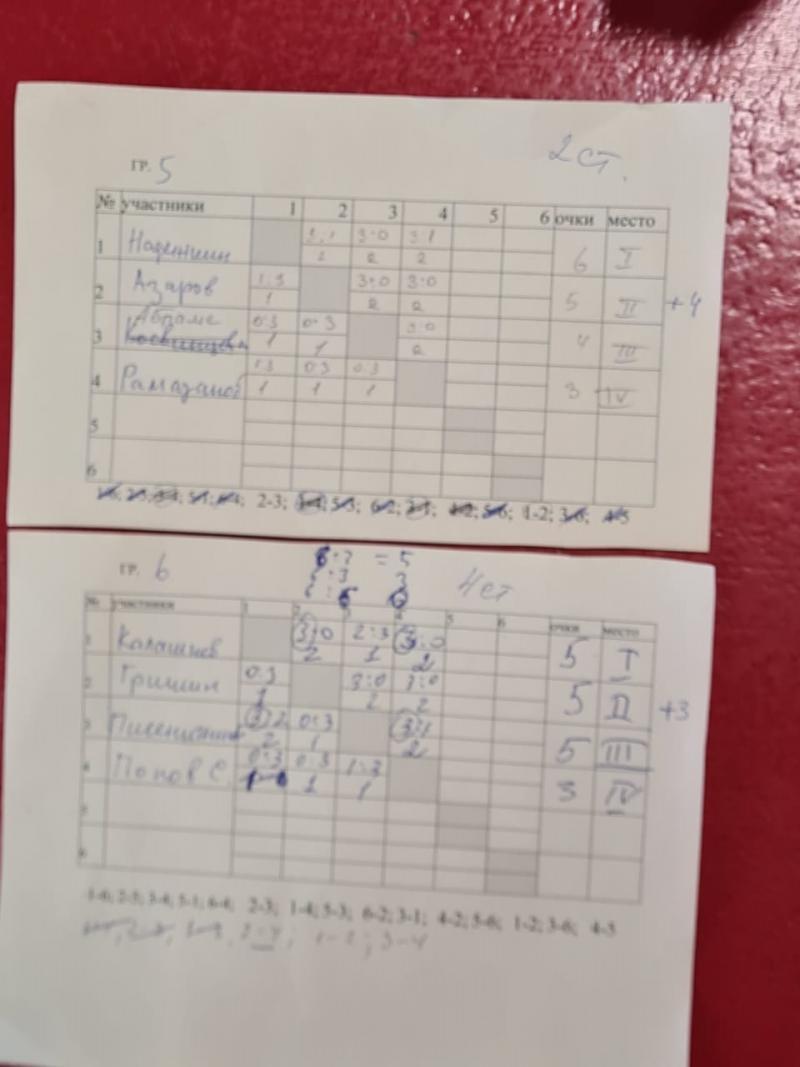 ГР. 5 2 ст.
№ участники 1 2 3 4 5 6 очки место
3:0 3:1
1 2 2 2 6 I
Азаров 1:3 3:0 3:0
2 1 2 2 5 II +4
Абраме 0:3 0:3 3:0
3 1 1 2 4 III
Рамазанов 1:3 0:3 0:3
4 1 1 1 3 IV
5
6
2-3; 1-2;
ГР. 6 4 ст
= 5
3
№ участники 1 2 3 4 5 6 очки место
1 Калашнев 3:0 2:3 3:0
2 1 2 5 I
2 Гришин 0:3 3:0 3:0
1 2 2 5 II +3
3 3:2 0:3 3:1
2 1 2 5 III
4 Попов С 0:3 0:3 1:3
1 1 3 IV
5
6
1-6; 2-5; 3-4; 5-1; 6-4; 2-3; 1-4; 5-3; 6-2; 3-1; 4-2; 5-6; 1-2; 3-6; 4-5
2-4; 1-2; 3-4